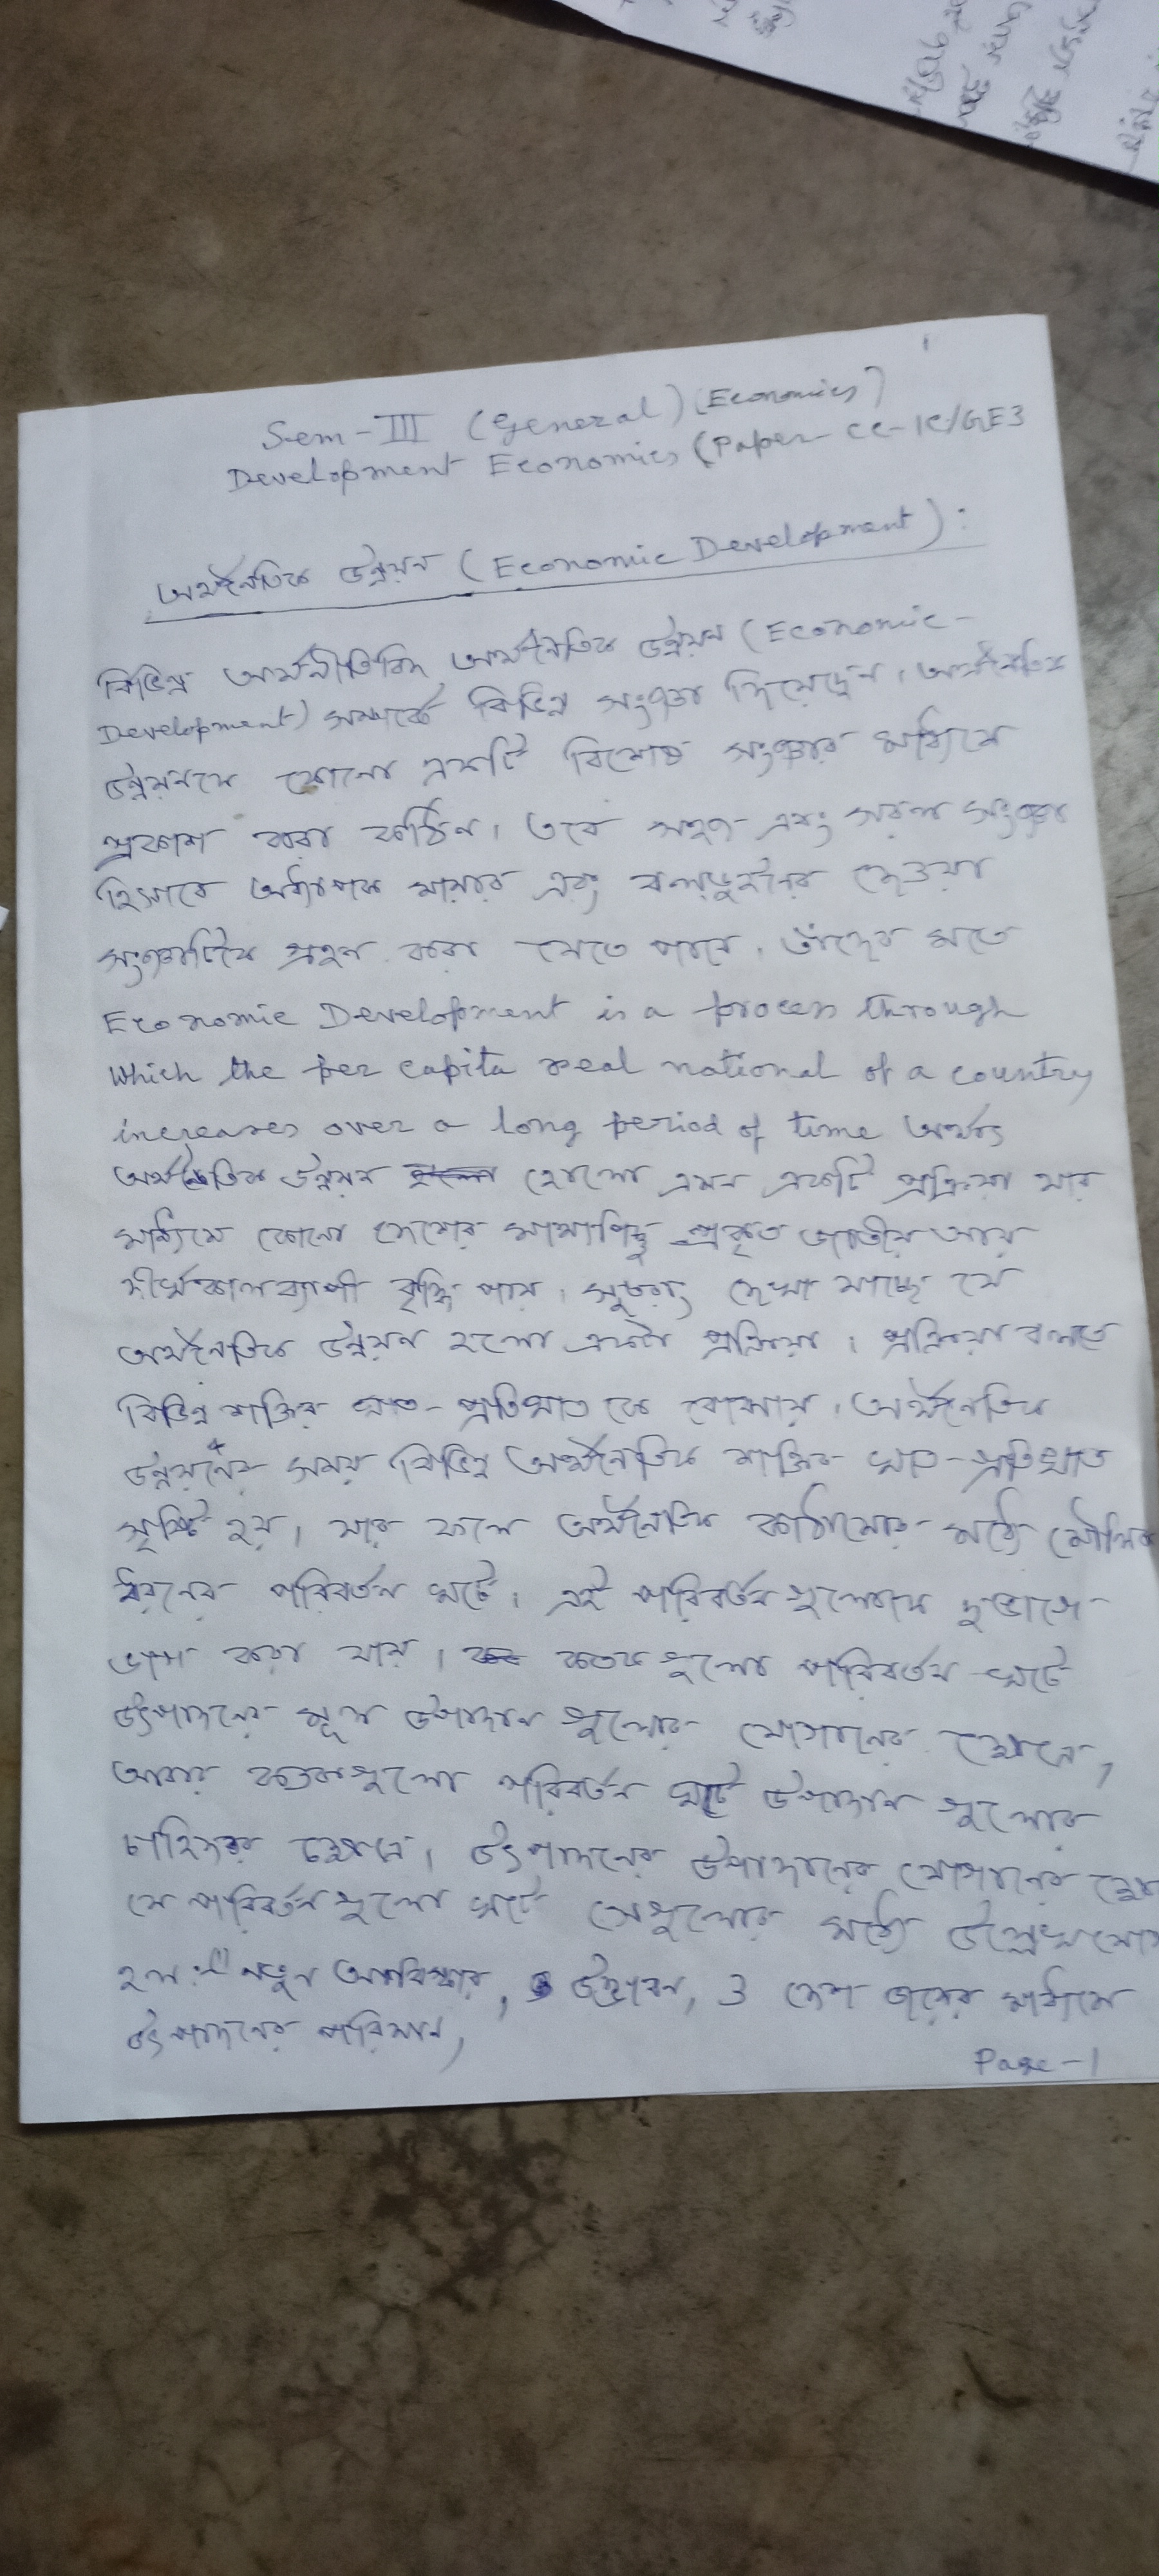 Sem-III (General) (Economics)
Development Economics (Paper-CC-1C/GE3
অর্থনৈতিক উন্নয়ন (Economic Development) :
বিভিন্ন অর্থনীতিবিদ অর্থনৈতিক উন্নয়ন (Economic-
Development) সম্পর্কে বিভিন্ন সংজ্ঞা দিয়েছেন। অর্থনৈতিক
উন্নয়নকে কোনো একটি বিশেষ সংজ্ঞার মাধ্যমে
প্রকাশ করা কঠিন। তবে সহজ এবং সরল সংজ্ঞা
হিসাবে অধ্যাপক মায়ার এবং বল্ডুইনের দেওয়া
সংজ্ঞাটিকে গ্রহন করা যেতে পারে। তাঁদের মতে
Economic Development is a process through
which the per capita real national of a country
increases over a long period of time অর্থাৎ
অর্থনৈতিক উন্নয়ন হোলো এমন একটি প্রক্রিয়া যার
মাধ্যমে কোনো দেশের মাথাপিছু প্রকৃত জাতীয় আয়
দীর্ঘকালব্যাপী বৃদ্ধি পায়। সুতরাং দেখা যাচ্ছে যে
অর্থনৈতিক উন্নয়ন হলো একটা প্রক্রিয়া। প্রক্রিয়া বলতে
বিভিন্ন শক্তির ঘাত-প্রতিঘাত কে বোঝায়। অর্থনৈতিক
উন্নয়নের সময় বিভিন্ন অর্থনৈতিক শক্তির ঘাত-প্রতিঘাত
সৃষ্টি হয়। যার ফলে অর্থনৈতিক কাঠামোর মধ্যে মৌলিক
ধরনের পরিবর্তন ঘটে। এই পরিবর্তন গুলোকে দুভাগে
ভাগ করা যায়। কতকগুলো পরিবর্তন ঘটে
উৎপাদনের মূল উপাদান গুলোর যোগানের ক্ষেত্রে,
আবার কতকগুলো পরিবর্তন ঘটে উপাদান গুলোর
চাহিদার ক্ষেত্রে। উৎপাদনের উপাদানের যোগানের
যে পরিবর্তন গুলো ঘটে সেগুলোর মধ্যে
হল :- নতুন আবিস্কার, উদ্ভাবন, ও মাধ্যমে
উৎপাদনের পরিমান,
Page-1